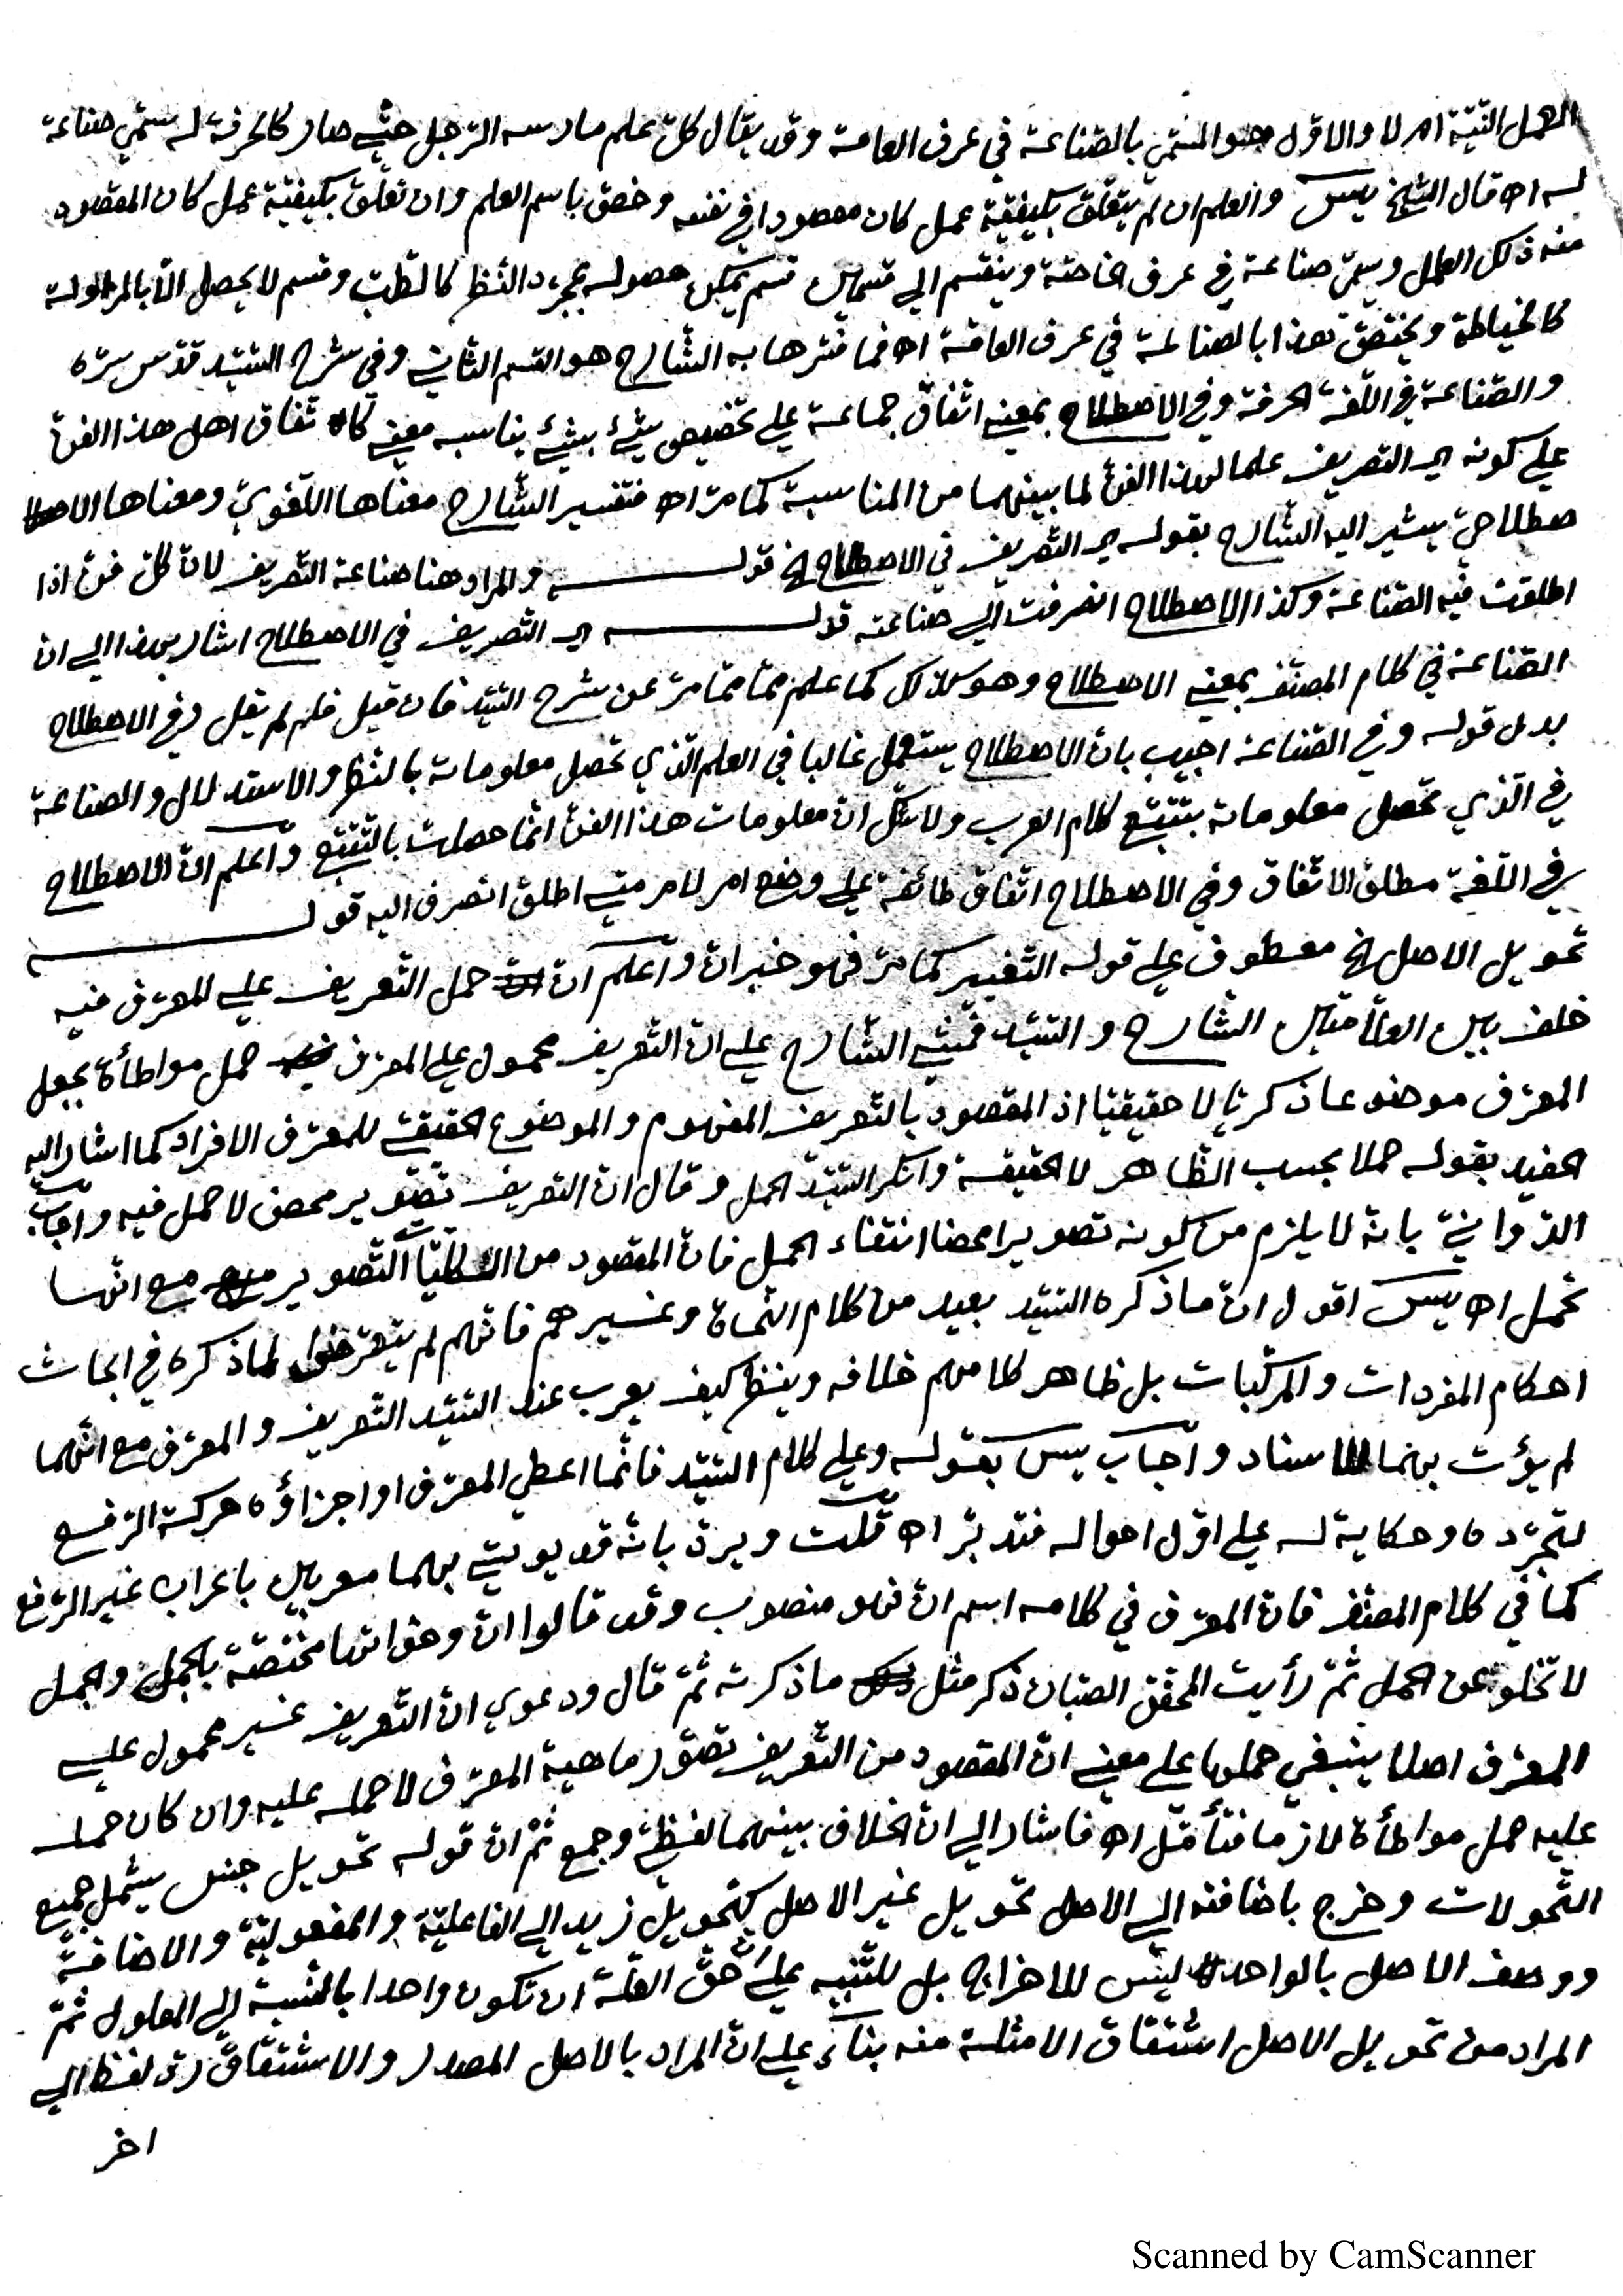 العمل البتة ام لا والاول هو المسمّى بالصّناعة في عرف العامة وقد يقال كلّ علم مارسه الرّجل حتّى صار كالحرفة له سمّي صناعة
له اه قال الشّيخ يس والعلم ان لم يتعلّق بكيفيّة عمل كان مقصودا في نفسه وخصّ باسم العلم وان تعلّق بكيفيّة عمل كان المقصود
منه ذلك العمل وسمّي صناعة في عرف الخاصّة وينقسم الى قسمين قسم يمكن حصوله بمجرد النّظر كالطّب وقسم لا يحصل الّا بالمزاولة
كالخياطة ويختصّ هذا بالصناعة في عرف العامّة اه فما فسّرها به الشّارح هو القسم الثاني وفي شرح السّيّد قدّس سرّه
والصّناعة في اللّغة الحرفة وفي الاصطلاح بمعنى اتّفاق جماعة على تخصيص شيئ بشيئ يناسب معنى كاتّفاق اهل هذا الفنّ
على كونه اي التصريف علما لهذا الفنّ لما بينهما من المناسبة كما مرّ اه فتفسير الشّارح معناها اللّغويّ ومعناها الا
صطلاحيّ يشير اليه الشّارح بقوله اي التصريف في الاصطلاح الخ قوله والمراد هنا صناعة التصريف لانّ كلّ فنّ اذا
اطلقت فيه الصّناعة وكذا الاصطلاح انصرفت الى صناعته قوله اي التّصريف في الاصطلاح اشار بهذا الى ان
الصّناعة في كلام المصنّف بمعنى الاصطلاح وهو كذلك كما علم ممّا مرّ عن شرح السّيّد فان قيل فلم لم يقل وفي الاصطلاح
بدل قوله وفي الصّناعة اجيب بانّ الاصطلاح يستعمل غالبا في العلم الّذي تحصل معلوماته بالنّظر والاستدلال والصناعة
في الّذي تحصل معلوماته بتتبّع كلام العرب ولا شكّ انّ معلومات هذا الفنّ انّما حصلت بالتّتبّع واعلم انّ الاصطلاح
في اللّغة مطلق الاتّفاق وفي الاصطلاح اتّفاق طائفة على وضع امر لامر متى اطلق انصرف اليه قوله
تحويل الاصل الخ معطوف على قوله التّغيير كما مرّ فهو خبر ان واعلم انّ حمل التّعريف على المعرّف فيه
خلف بين العلّامتين الشّارح والسّيّد فمشى الشّارح على انّ التّعريف محمول على المعرّف حمل مواطأة بجعل
المعرّف موضوعا ذكريّا لا حقيقيّا اذ المقصود بالتّعريف المفهوم والموضوع الحقيقيّ للمعرّف الافراد كما اشار اليه
الحفيد بقوله حملا بحسب الظّاهر لا الحقيقة وانكر السّيّد الحمل وقال انّ التعريف تصوير محض لا حمل فيه واجاب
الدّوانيّ بانّه لا يلزم من كونه تصويرا محضا انتفاء الحمل فانّ المقصود من الكلّيّات التّصوير مع انّها
تحمل اه يس اقول انّ ما ذكره السّيّد بعيد من كلام النّحاة وغيرهم فانّهم لم يتعرّضوا لما ذكره في ابحاث
احكام المفردات والمركّبات بل ظاهر كلامهم خلافه وينظر كيف يعرب عند السّيّد التّعريف والمعرّف مع انّهما
لم يؤت بهما للاسناد واجاب يس بقوله وعلى كلام السّيّد فانّما اعطي المعرّف او اجزاؤه حركة الرّفع
لتجرّده وحكاية له على اوّل احواله فتدبّر اه قلت ويردّ بانّه قد يوتى بهما معربين باعراب غير الرّفع
كما في كلام المصنّف فانّ المعرّف في كلامه اسم انّ فهو منصوب وقد قالوا انّ واخواتها مختصّة بالجمل والجمل
لا تخلو عن الحمل ثمّ رأيت المحقّق الصّبّان ذكر مثل ما ذكرته ثمّ قال ودعوى انّ التّعريف غير محمول على
المعرّف اصلا ينبغي حملها على معنى انّ المقصود من التّعريف تصوّر ماهية المعرّف لا حمله عليه وان كان حمله
عليه حمل مواطأة لازما فتأمّل اه فاشار الى انّ الخلاف بينهما لفظيّ وجمع ثمّ انّ قوله تحويل جنس يشمل جميع
التّحولات وخرج باضافته الى الاصل تحويل غير الاصل كتحويل زيد الى الفاعليّة والمفعوليّة والاضافة
ووصف الاصل بالواحد ليس للاخراج بل للتّنبيه على حقّ العلّة ان تكون واحدا بالنّسبة الى المعلول ثمّ
المراد من تحويل الاصل اشتقاق الامثلة منه بناء على انّ المراد بالاصل المصدر والاشتقاق ردّ لفظ الى
اخر
Scanned by CamScanner